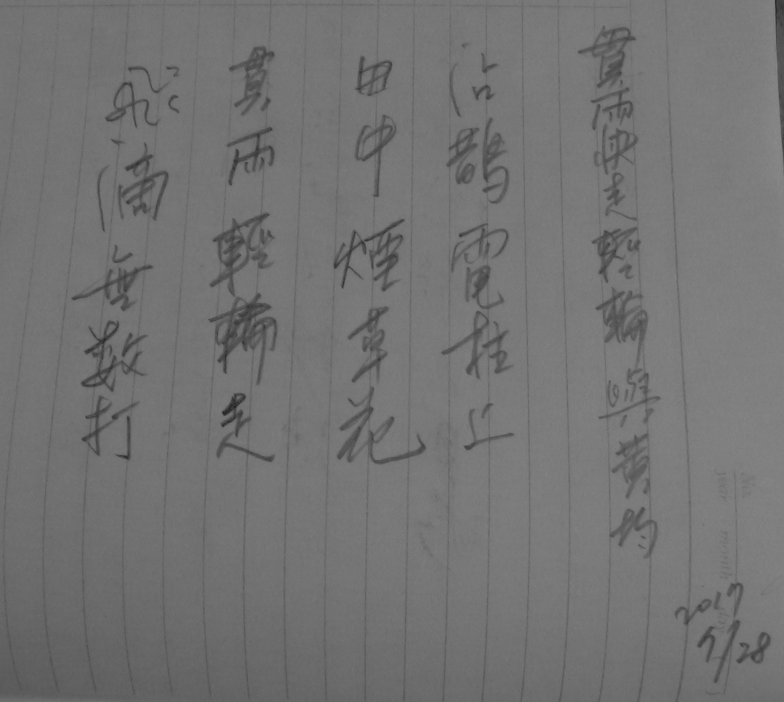 貫雨走輕輪與黃均
沾鵲電柱上
田中煙草花
貫雨輕輪走
飛滴無数打
2017
7/28